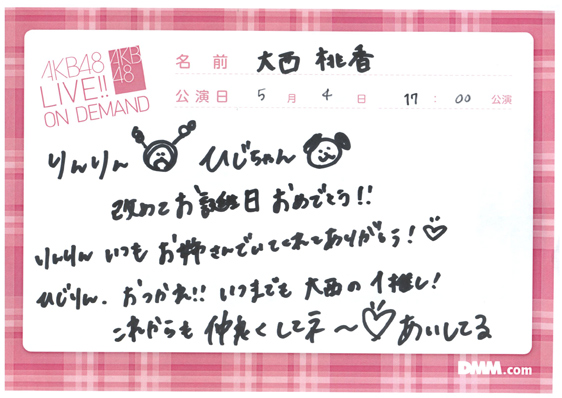 AKB48
LIVE!!
ON DEMAND
AKB
48
名前 大西桃香
公演日 5月4日 17:00公演
りんりん ひじちゃん
改めてお誕生日おめでとう!!
りんりん いつもお姉さんでいてくれてありがとう!♡
ひじりん、おつかれ!!いつまでも大西の1推し!
これからも仲良くしてネ〜♡あいしてる
DMM.com